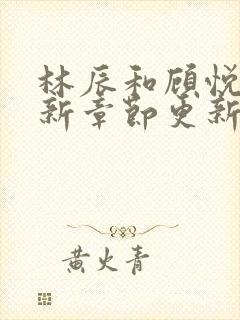 林辰和顾悦
新章节更新
黄火青